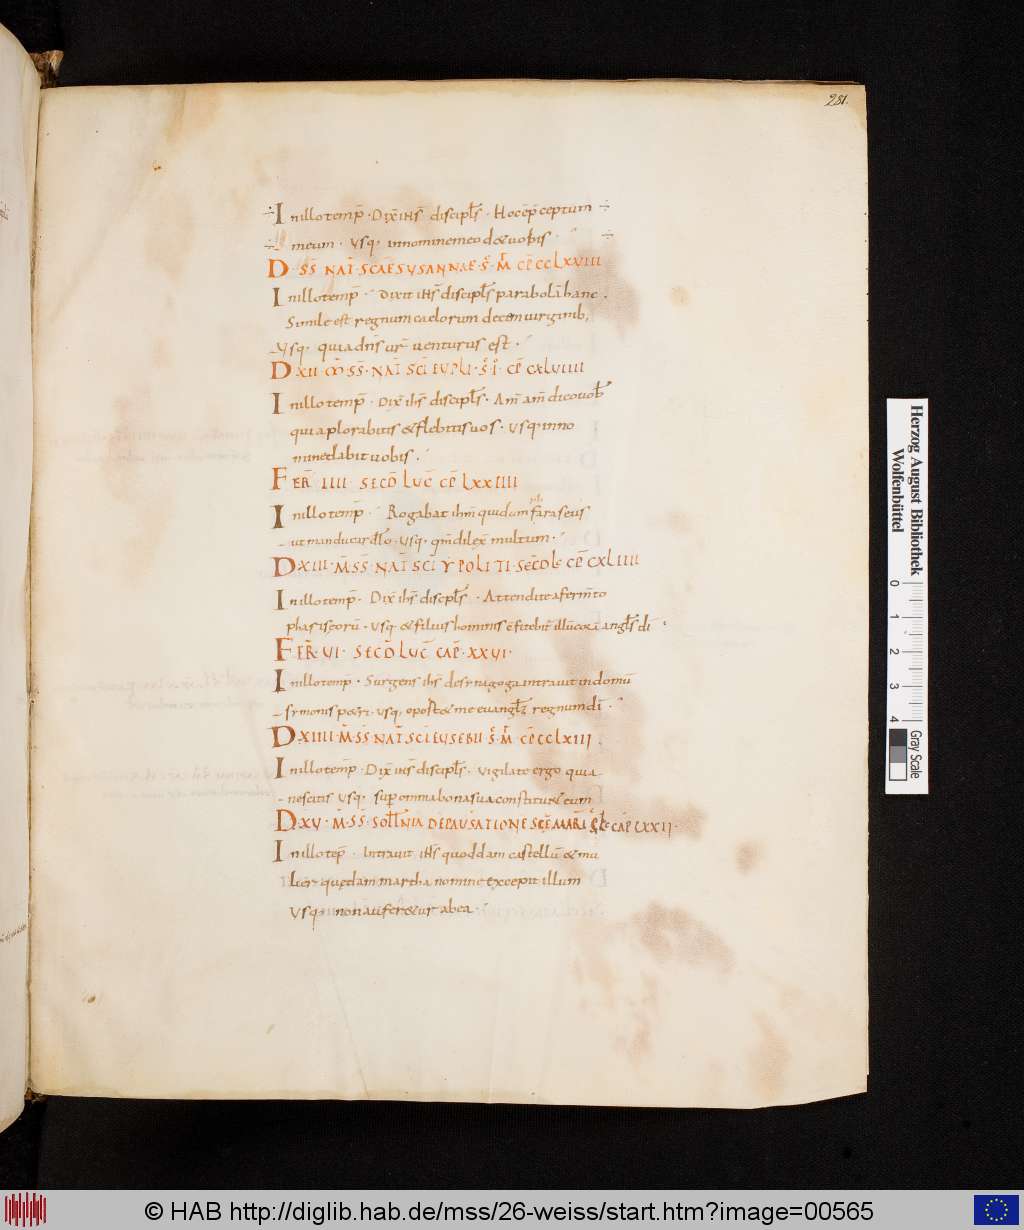 281.
÷ Inillotemp̄ · Dix̄ ih̄s discipl̄s · Hoc ē p̄ceptum ÷
÷ meum · Usq· innominemeo d&uobis · ÷
D · S̄S̄ NAT̄ SCAE SUSANNAE · S̄ · M̄ · CP̄ CCLXXIII
Inillotemp̄ · Dixit ih̄s discipl̄s parabolā hanc ·
Simile est regnum caelorum decem uirginib;
Usq· quia dn̄s ur̄ uenturus est ·
D XII · M̄ · S̄S̄ · NAT̄ SCI EUPLI · S̄ · I̊ · CP̄ CXLVIIII
Inillotemp̄ · Dix̄ ih̄s discipl̄s · Am̄ am̄ dico uob̄
quia plorabitis & flebitis uos · Usq· inno
mine dabit uobis ·
FER̄ IIII · SECD̄ LUC̄ CP̄ LXXIIII
Inillotemp̄ · Rogabat ihm̄ quidam faraseus
ut manducar& cū illo · Usq· qm̄ dilex̄ multum ·
D XIII · M̄ · S̄S̄ · NAT̄ SCI YPOLITI · SEC̄D LC̄ CP̄ CXLIIII
Inillotemp̄ · Dix̄ ih̄s discipl̄s · Attendite a ferm̄to
phariseorū · Usq· & filius hominis c̄fitebit̄ illū corā angl̄s dī ·
FER̄ VI · SECD̄ LUC̄ CAP̄ · XXVI ·
Inillotemp̄ · Surgens ih̄s de synagoga intrauit in domū
symonis p&ri · Usq· oport& me euangl̄z regnum dī ·
D XIIII · M̄ · S̄S̄ NAT̄ SCI EUSEBII · S̄ · M̄ · CP̄ CCLXIII ·
Inillotemp̄ · Dix̄ ih̄s discipl̄s · Uigilate ergo quia
nescitis Usq· sup̄ omnia bona sua constitu& eum
D XV · M̄ · S̄S̄ · SOLL̄NIA DE PAUSATIONE SC̄E MARIĘ S̄ LC̄ CAP̄ CXXII ·
Inillotēp̄ · Intrauit ih̄s quoddam castellū & mu
lier quędam martha nomine excepit illum
Usq· non aufer&ur ab ea ·
Herzog August Bibliothek
Wolfenbüttel
0 1 2 3 4
Gray Scale
© HAB http://diglib.hab.de/mss/26-weiss/start.htm?image=00565